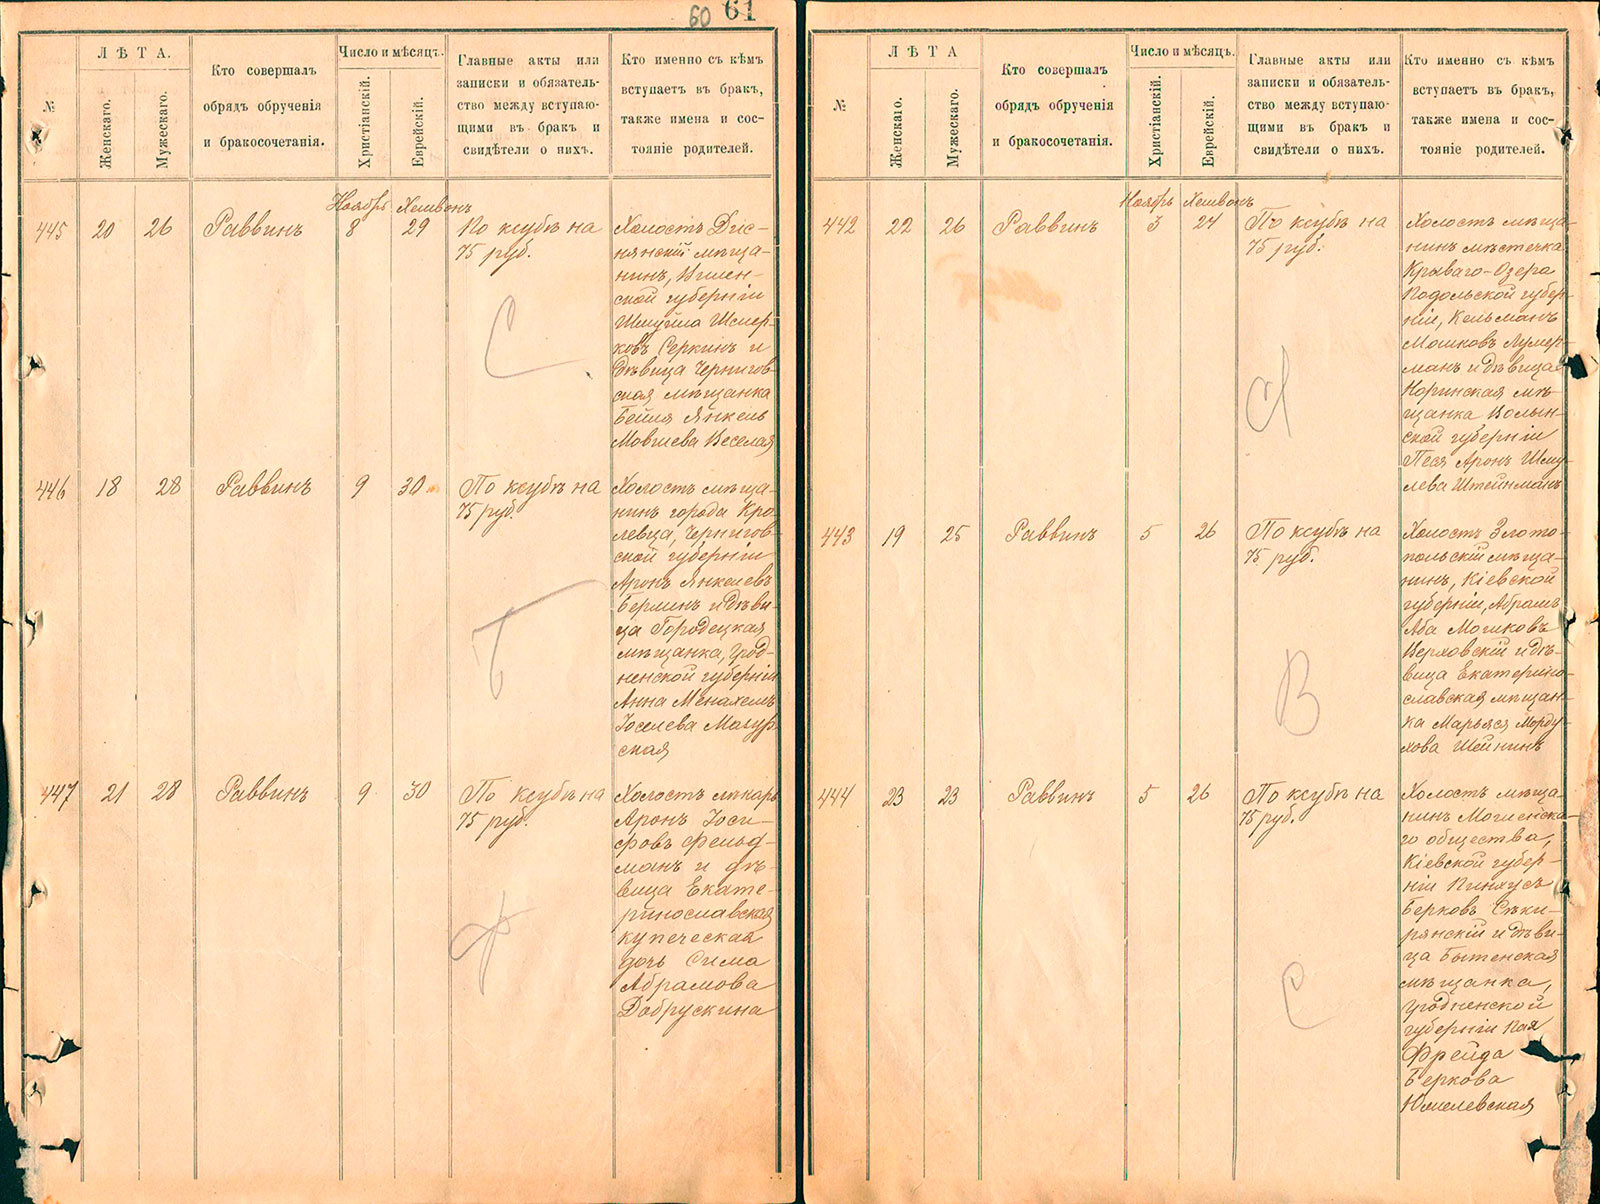 60 61
ЛѢТА.
Число и мѣсяцъ.
№
Женскаго.
Мужескаго.
Кто совершалъ
обрядъ обрученія
и бракосочетанія.
Христіанскій.
Еврейскій.
Главные акты или
записки и обязатель-
ство между вступаю-
щими въ бракъ и
свидѣтели о нихъ.
Кто именно съ кѣмъ
вступаетъ въ бракъ,
также имена и сос-
тояніе родителей.
Ноябрь Хешвонъ
445 20 26 Раввинъ 8 29
По ксубѣ на
75 руб.
Холостъ Дис-
нянскій мѣща-
нинъ, Вилен-
ской губерніи
Шмуйла Шмер-
ковъ Серкинъ и
дѣвица Чернигов-
ская мѣщанка
Бейля Янкель
Мовшева Веселая
С
446 18 28 Раввинъ 9 30
По ксубѣ на
75 руб.
Холостъ мѣща-
нинъ города Кро-
левца, Чернигов-
ской губерніи
Аронъ Янкелевъ
Берлинъ и дѣви-
ца Городецкая
мѣщанка, Грод-
ненской губерніи
Анна Менахемъ
Іоселева Мазур-
ская
Б
447 21 28 Раввинъ 9 30
По ксубѣ на
75 руб.
Холостъ лѣкарь
Аронъ Іоси-
фовъ Фельд-
манъ и дѣ-
вица Екате-
ринославская
купеческая
дочь Сима
Абрамова
Добрускина
Ф
ЛѢТА
Число и мѣсяцъ.
№
Женскаго.
Мужескаго.
Кто совершалъ
обрядъ обрученія
и бракосочетанія.
Христіанскій.
Еврейскій.
Главные акты или
записки и обязатель-
ство между вступаю-
щими въ бракъ и
свидѣтели о нихъ.
Кто именно съ кѣмъ
вступаетъ въ бракъ,
также имена и сос-
тояніе родителей.
Ноябрь Хешвонъ
442 22 26 Раввинъ 3 24
По ксубѣ на
75 руб.
Холостъ мѣща-
нинъ мѣстечка
Криваго-Озера
Подольской губер-
ніи, Кельманъ
Мошковъ
манъ и дѣвица
Норинская мѣ-
щанка Волын-
ской губерніи
Песя Аронъ Шму-
лева Штейнманъ
443 19 25 Раввинъ 5 26
По ксубѣ на
75 руб.
Холостъ Злато-
польскій мѣща-
нинъ, Кіевской
губерніи, Абрамъ
Аба Мошковъ
Верховскій и дѣ-
вица Екатерино-
славская мѣщан-
ка Марьяся Морду-
хова Шейнинъ
В
444 23 23 Раввинъ 5 26
По ксубѣ на
75 руб.
Холостъ мѣща-
нинъ
го общества,
Кіевской губер-
ніи Пинхусъ
Берковъ Сѣки-
рянскій и дѣви-
ца Бытенская
мѣщанка,
Гродненской
губерніи Хая
Фрейда
Беркова
Юмелевская
С